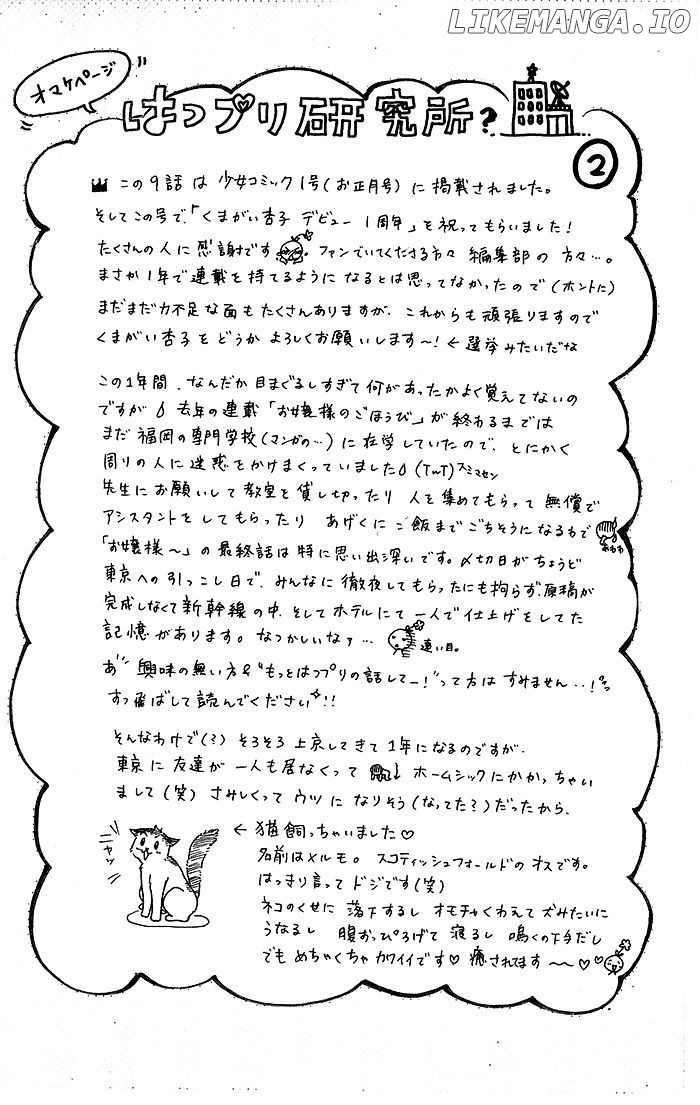 LIKEMANGA.IO
オマケページ
はつプリ研究所?
2
この9話は少女コミック1号(お正月号)に掲載されました。
そしてこの号で、「くまがい杏子 デビュー1周年」を祝ってもらいました!
たくさんの人に感謝です ファンでいてくださる方々 編集部の方々…。
まさか1年で連載を持てるようになるとは思ってなかったので(ホントに)
まだまだ力不足な面もたくさんありますが、これからも頑張りますので
くまがい杏子をどうかよろしくお願いします〜! ←選挙みたいだな
この1年間、なんだか目まぐるしすぎて何があったかよく覚えてないの
ですが 去年の連載「お嬢様のごほうび」が終わるまでは
まだ福岡の専門学校(マンガの…)に在学していたので、とにかく
周りの人に迷惑をかけまくっていました(TωT)スミマセン
先生にお願いして教室を貸し切ったり 人を集めてもらって無償で
アシスタントをしてもらったり あげくにご飯までごちそうになるわで
あわわ
「お嬢様〜」の最終話は特に思い出深いです。〆切日がちょうど
東京への引っこし日で、みんなに徹夜してもらったにも拘らず、原稿が
完成しなくて新幹線の中、そしてホテルにて一人で仕上げをしてた
記憶があります。なつかしいなァ… 遠い目。
あ"興味の無い方&"もっとはつプリの話してー!"って方はすみません…!
すっ飛ばして読んでください!!
そんなわけで(?)そろそろ上京してきて1年になるのですが、
東京に友達が一人も居なくって ↓ ホームシックにかかっちゃい
まして(笑)さみしくってウツになりそう(なってた?)だったから、
←猫飼っちゃいました♡
ニャッ
名前はメルモ。スコティッシュフォールドのオスです。
はっきり言ってドジです(笑)
ネコのくせに落下するし オモチャくわえて犬みたいに
うなるし 腹おっぴろげて寝るし 鳴くの下手だし
でもめちゃくちゃカワイイです♡癒されてます〜〜♡♡